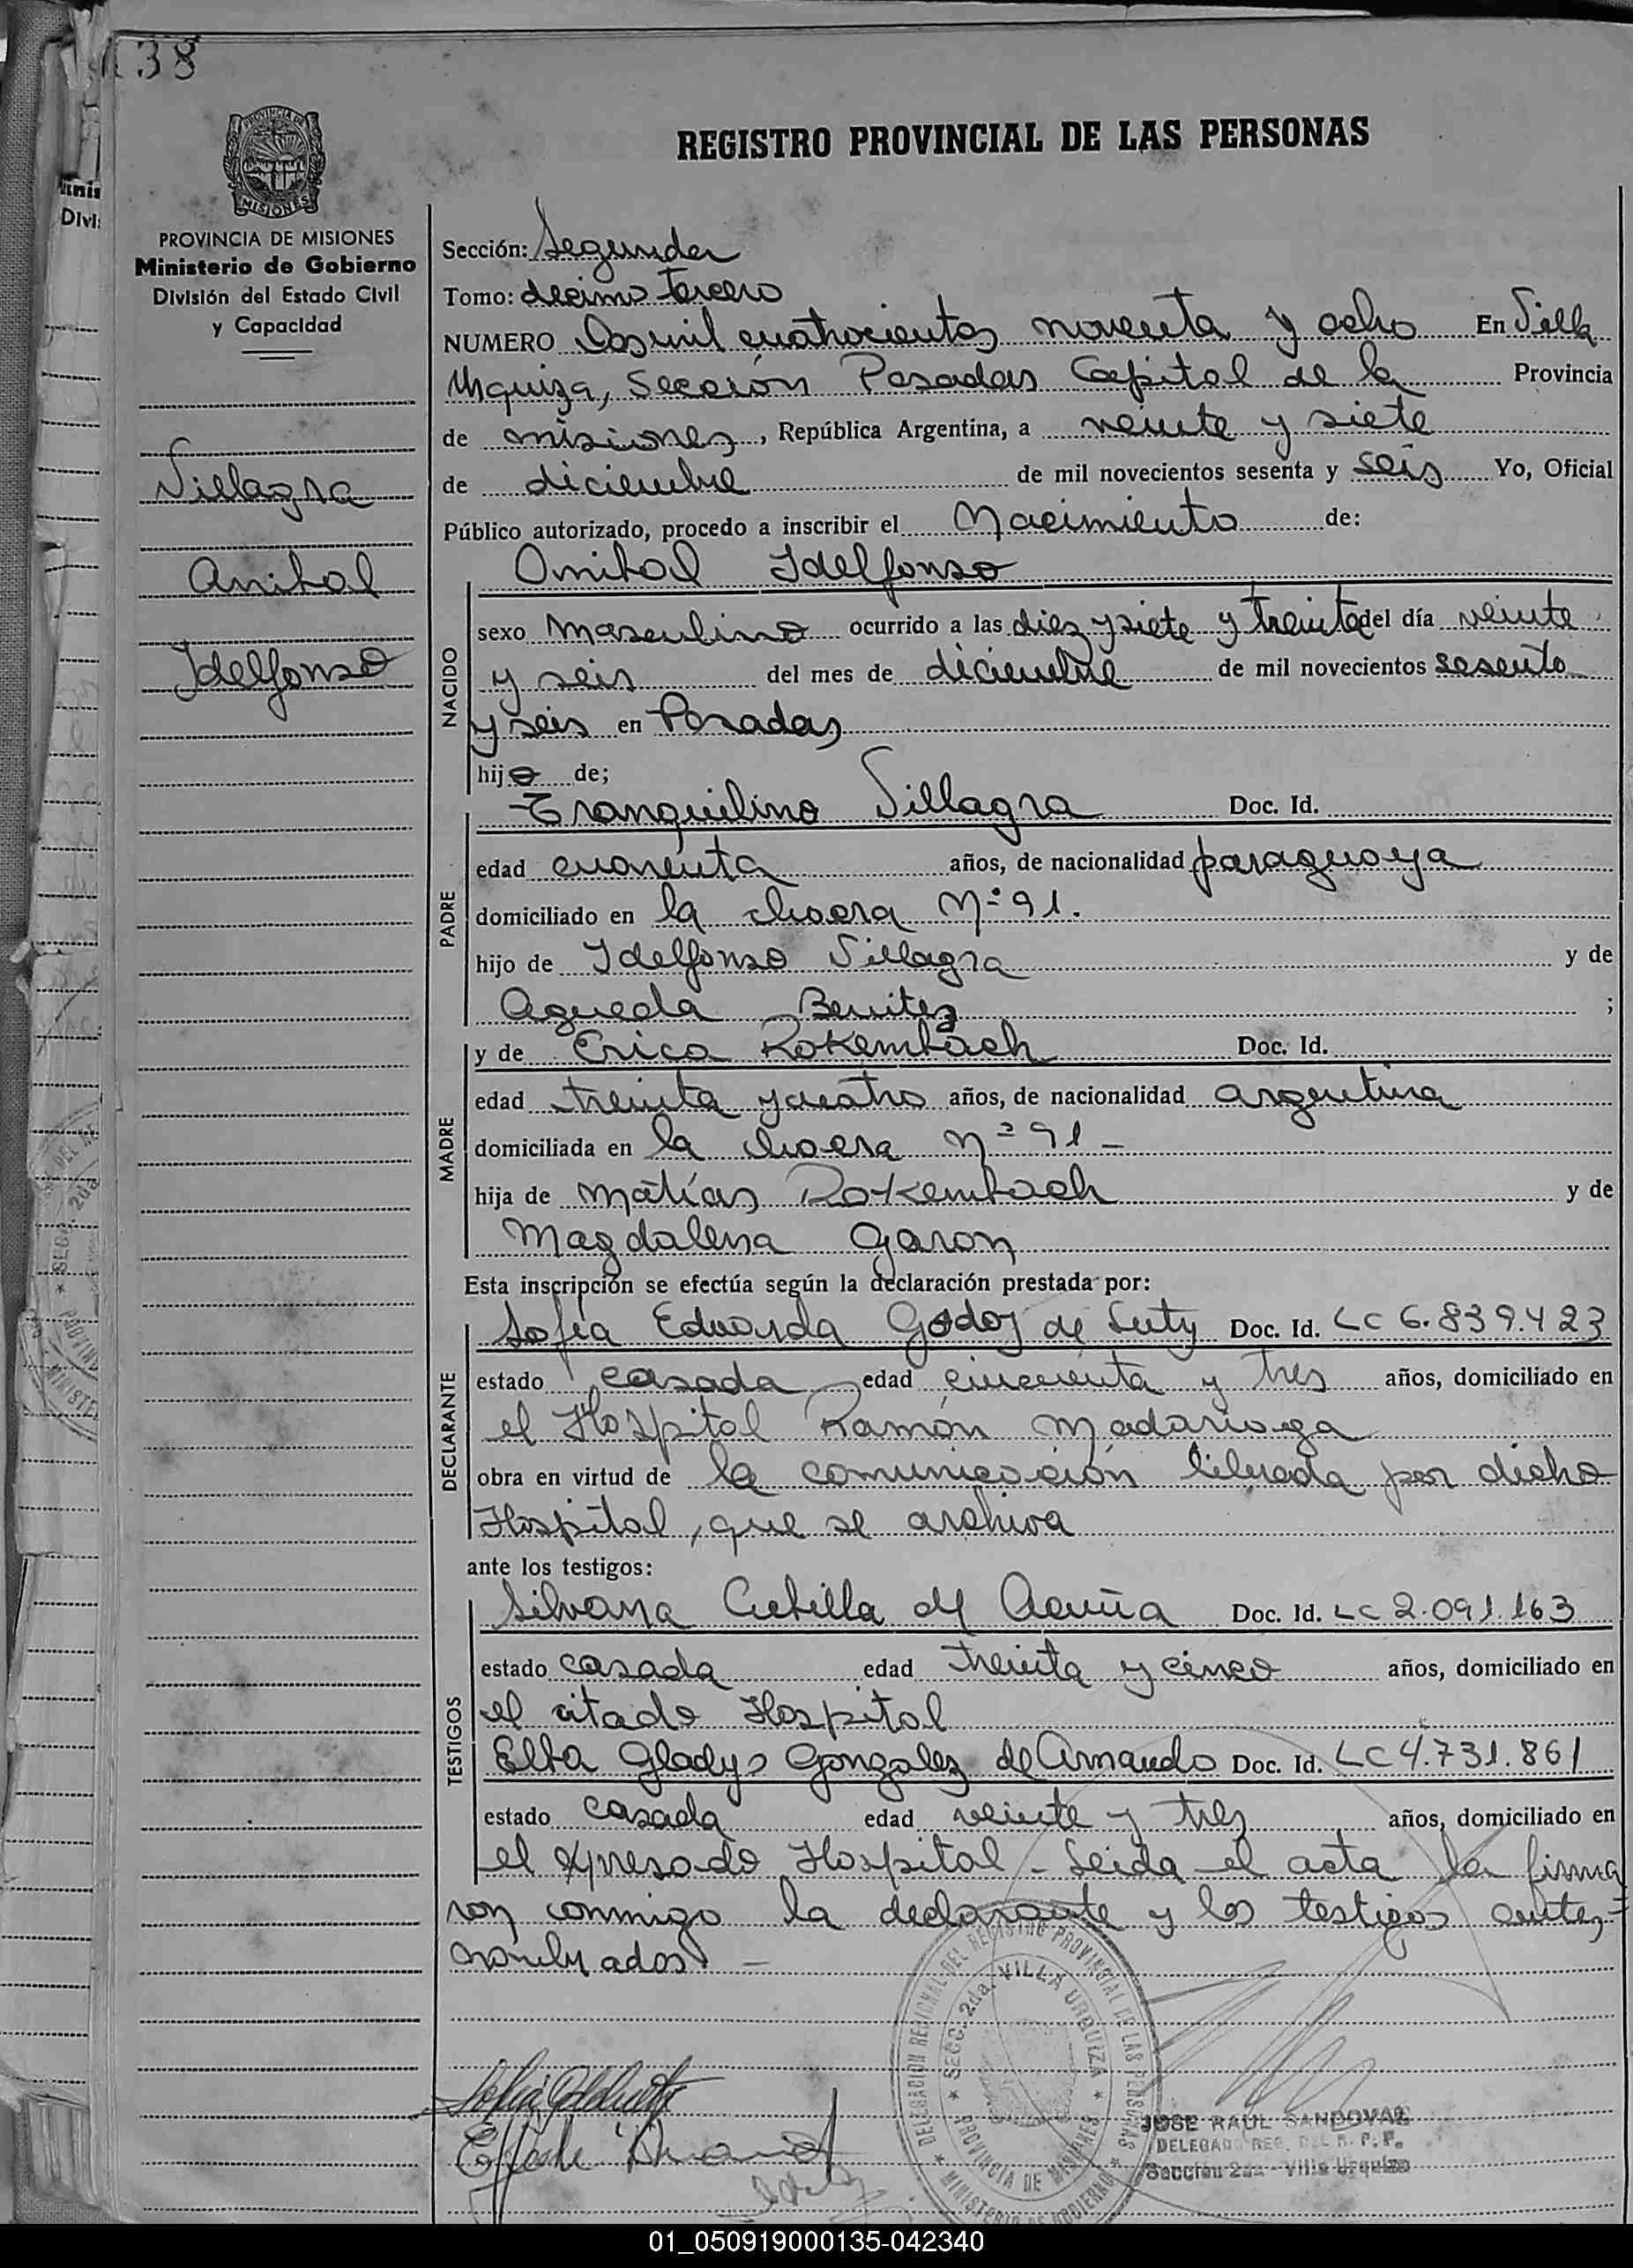 138
PROVINCIA DE
MISIONES
REGISTRO PROVINCIAL DE LAS PERSONAS
PROVINCIA DE MISIONES
Ministerio de Gobierno
División del Estado Civil
y Capacidad
Villagra
Anibal
Idelfonso
Sección: Segunda
Tomo: decimo tercero
NUMERO Dos mil cuatrocientos noventa y ocho En Villa
Urquiza, Sección Posadas Capital de la Provincia
de misiones, República Argentina, a veinte y siete
de diciembre de mil novecientos sesenta y seis Yo, Oficial
Público autorizado, procedo a inscribir el Nacimiento de:
NACIDO
Anibal Idelfonso
sexo Masculino ocurrido a las diez y siete y treinta del día veinte
y seis del mes de diciembre de mil novecientos sesenta
y seis en Posadas
hijo de;
PADRE
Tranquilino Villagra Doc. Id.
edad cuarenta años, de nacionalidad paraguaya
domiciliado en la chacra Nº 91.
hijo de Idelfonso Villagra y de
Agueda Benitez ;
MADRE
y de Erica Rokembach Doc. Id.
edad treinta y cuatro años, de nacionalidad argentina
domiciliada en la chacra nº 91 -
hija de Matías Rokembach y de
Magdalena Garon
Esta inscripción se efectúa según la declaración prestada por:
DECLARANTE
Sofía Eduarda Godoy de Luty Doc. Id. LC 6.839.423
estado casada edad cincuenta y tres años, domiciliado en
el Hospital Ramón Madariaga
obra en virtud de la comunicación librada por dicho
Hospital, que se archiva
ante los testigos:
TESTIGOS
Silvana Cubilla de Acuña Doc. Id. LC 2.091.163
estado casada edad treinta y cinco años, domiciliado en
el citado Hospital
Elba Gladys Gonzalez de Amando Doc. Id. LC 4.731.861
estado casada edad veinte y tres años, domiciliado en
el expresado Hospital - Leida el acta la firma
ron conmigo la declarante y los testigos antes
nombrados -
DELEGACION REGIONAL DEL REGISTRO PROVINCIAL DE LAS PERSONAS
SECC. 2da. VILLA URQUIZA
PROVINCIA DE MISIONES
MINISTERIO DE GOBIERNO
JOSE RAUL SANDOVAL
DELEGADO REG. DEL R. P. P.
Sección 2da - Villa Urquiza
01_050919000135-042340